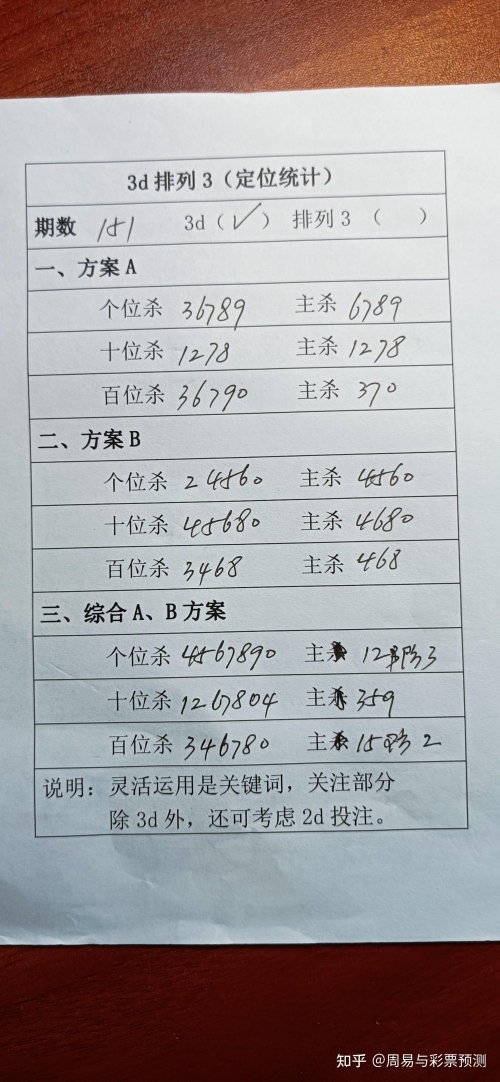 3d 排列 3（定位统计）
期数 151 3d（✓） 排列 3 （ ）
一、方案 A
个位杀 36789 主杀 6789
十位杀 1278 主杀 1278
百位杀 36790 主杀 370
二、方案 B
个位杀 24560 主杀 4560
十位杀 45680 主杀 4680
百位杀 3468 主杀 468
三、综合 A、B 方案
个位杀 4567890 主 12 防3
十位杀 1267804 主 359
百位杀 346780 主 15防2
说明：灵活运用是关键词，关注部分
除 3d 外，还可考虑 2d 投注。
知乎 @周易与彩票预测